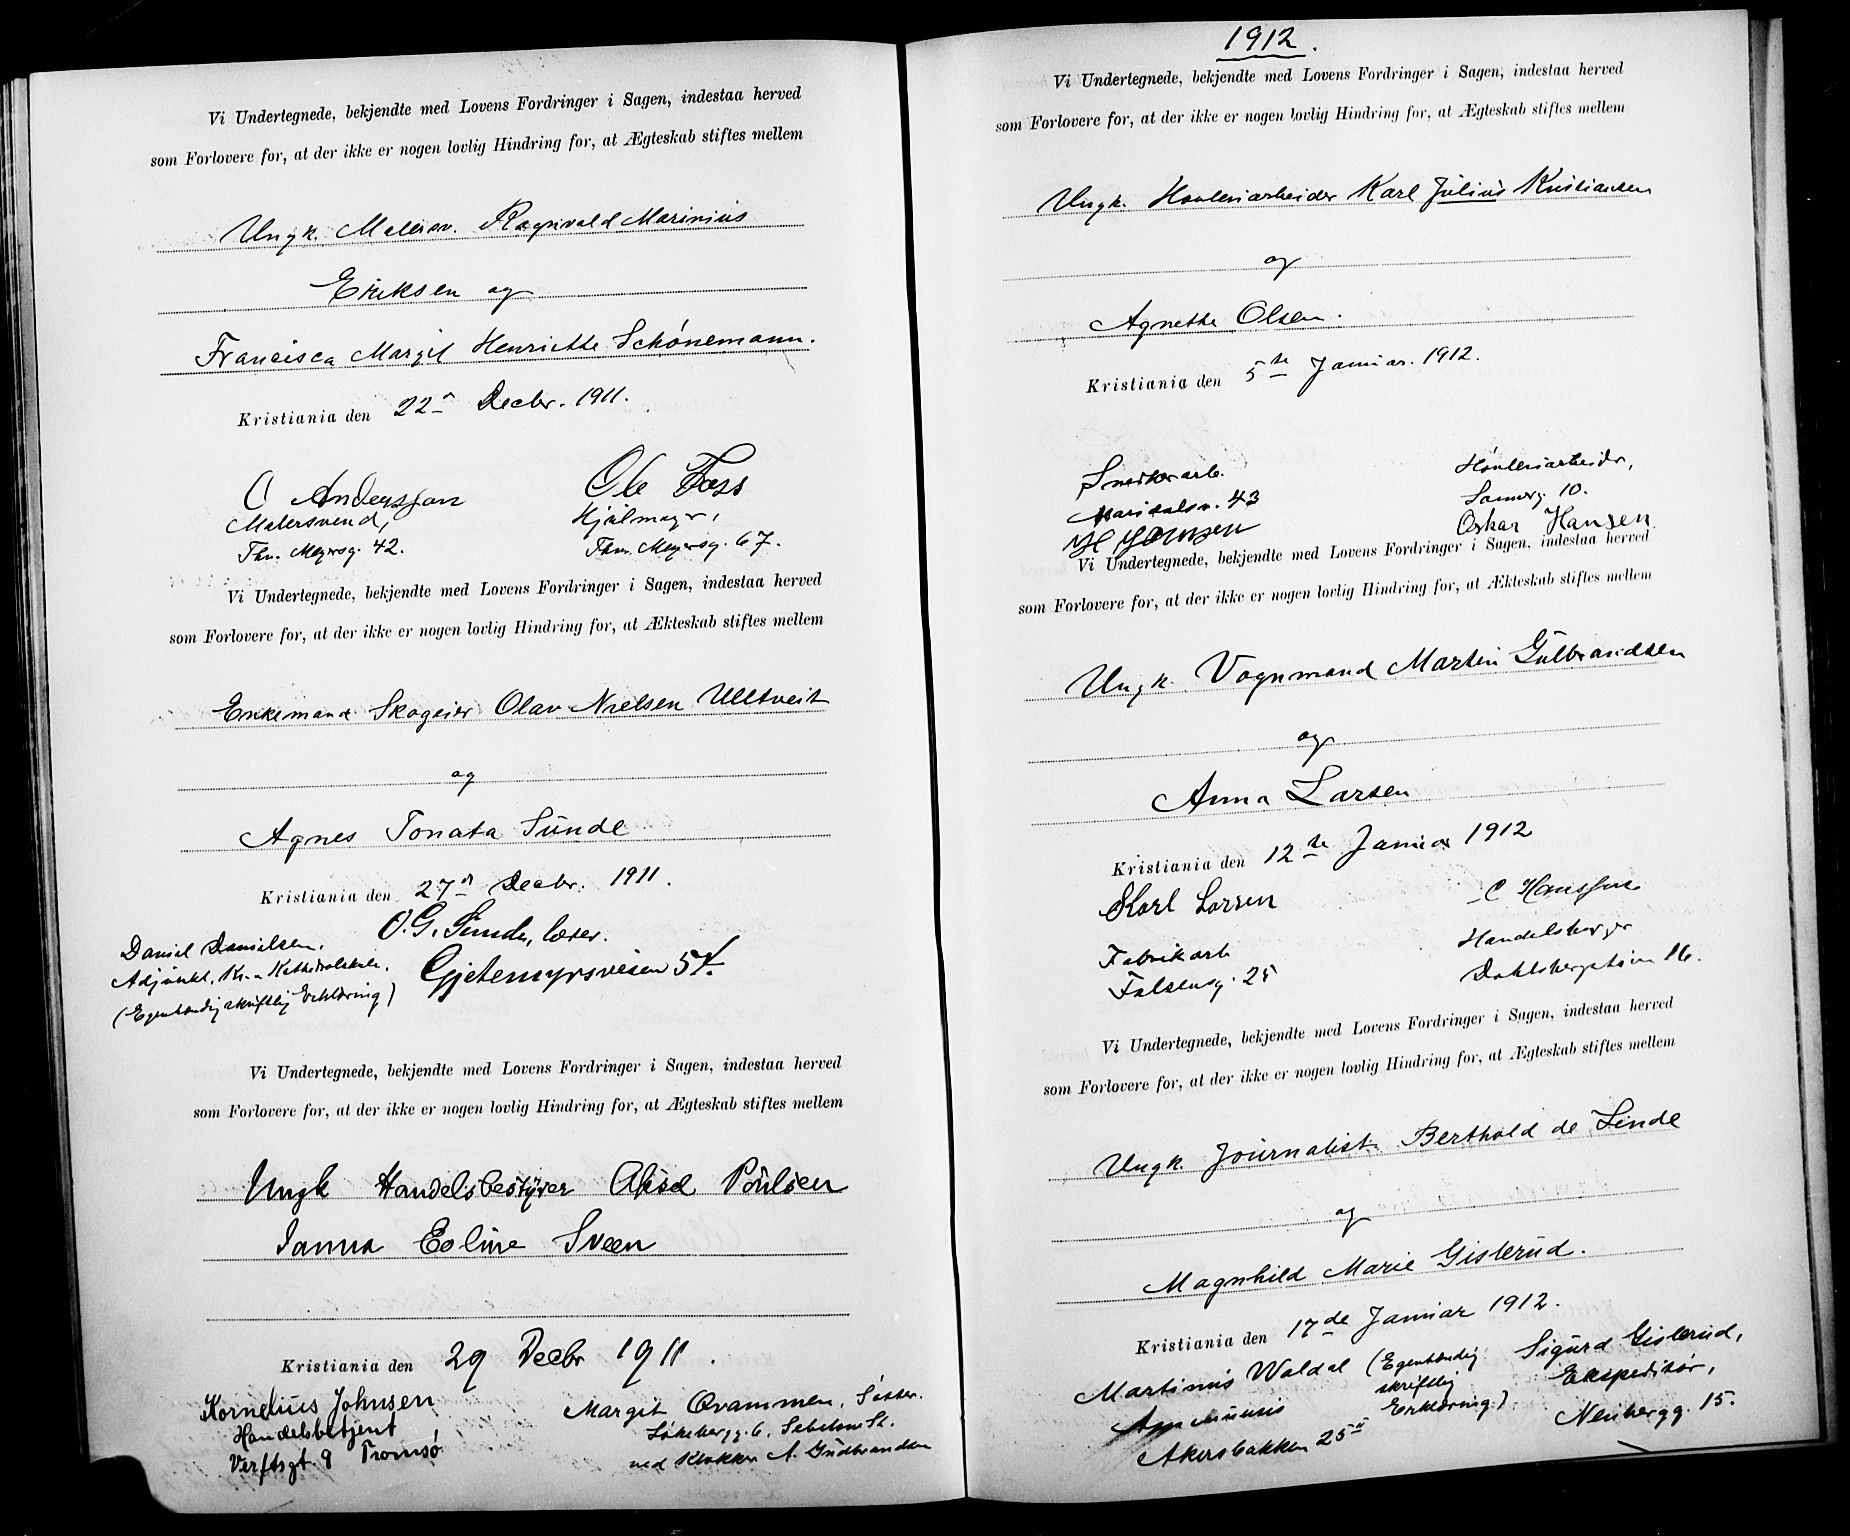 Vi Undertegnede, bekjendte med Lovens Fordringer i Sagen, indestaa herved
som Forlovere for, at der ikke er nogen lovlig Hindring for, at Ægteskab stiftes mellem
Ungk. Malersv. Ragnvald Marinius
Eriksen og
Francisca Margit Henriette Schönemann.
Kristiania den 22n Decbr. 1911.
O Andersson
Malersvend,
Thv. Meyersg. 42.
Ole Foss
Hjulmager,
Thv. Meyersg. 67.
Vi Undertegnede, bekjendte med Lovens Fordringer i Sagen, indestaa herved
som Forlovere for, at der ikke er nogen lovlig Hindring for, at Ækteskab stiftes mellem
Enkemand Skogeier Olav Nielsen Ulltveit
og
Agnes Tonata Sunde
Kristiania den 27d Decbr. 1911.
Daniel Danielsen,
Adjunkt, Kr.a Kathedralskole,
(Egenhændig skriftlig Erklæring)
O. G. Sunde, lærer.
Gjetemyrsveien 54.
Vi Undertegnede, bekjendte med Lovens Fordringer i Sagen, indestaa herved
som Forlovere for, at der ikke er nogen lovlig Hindring for, at Ægteskab stiftes mellem
Ungk Handelsbestyrer Aksel Poulsen
Janna Eoline Sveen
Kristiania den 29 Decbr 1911.
Kornelius Johnsen
Handelsbetjent
Verftsgt. 9 Tromsø
Margit Qvammen, Søster.
Løkebergg. 6,
ved Klokker A. Gudbrandsen
1912.
Vi Undertegnede, bekjendte med Lovens Fordringer i Sagen, indestaa herved
som Forlovere for, at der ikke er nogen lovlig Hindring for, at Ægteskab stiftes mellem
Ungk. Høvleriarbeider Karl Julius Kristiansen
og
Agnethe Olsen.
Kristiania den 5te Januar. 1912.
Snedkerarb.
Maridalsv. 43
H Hansen
Høvleriarbeider,
Sannerg. 10.
Oskar Hansen
Vi Undertegnede, bekjendte med Lovens Fordringer i Sagen, indestaa herved
som Forlovere for, at der ikke er nogen lovlig Hindring for, at Ækteskab stiftes mellem
Ungk. Vognmand Martin Gulbrandsen
og
Anna Larsen
Kristiania den 12te Januar 1912
Karl Larsen
Fabrikarb
Falsensg. 25
C Hansson
Handelsborger
Dahlsbergstien 16.
Vi Undertegnede, bekjendte med Lovens Fordringer i Sagen, indestaa herved
som Forlovere for, at der ikke er nogen lovlig Hindring for, at Ægteskab stiftes mellem
Ungk. Journalist Berthold de Linde
og
Magnhild Marie Gislerud.
Kristiania den 17de Januar 1912.
Martinus Waldal
Akersbakken 25
(Egenhændig
skriftlig
Erklæring)
Sigurd Gislerud,
Ekspeditør,
Neubergg. 15.